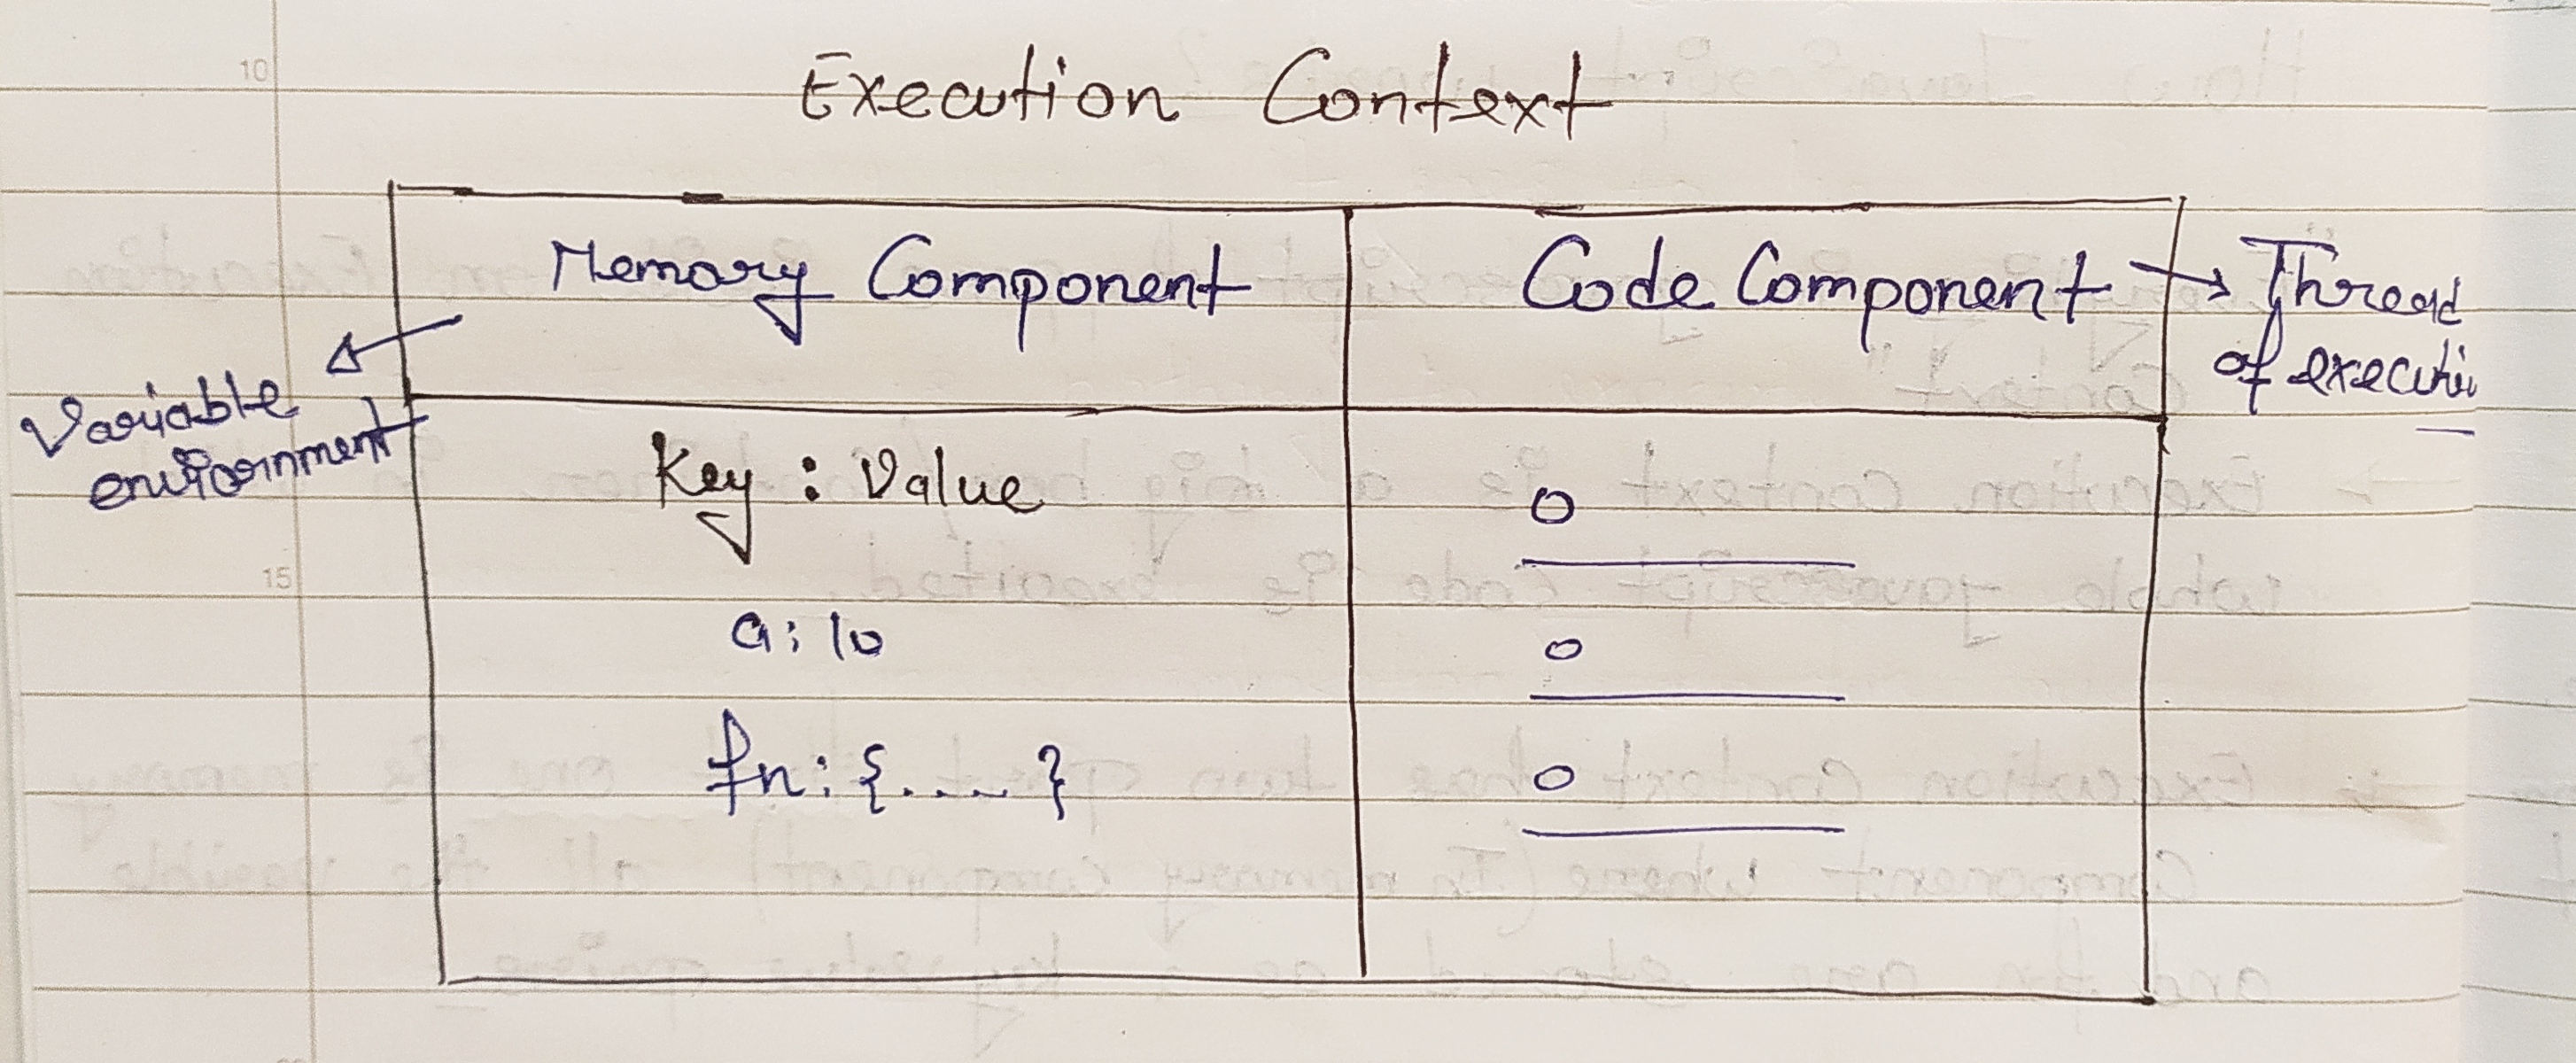 10
Execution Context
Memory Component
Code Component → Thread
of executi
Variable
environment
Key : Value
a : 10
fn : {.... }
15